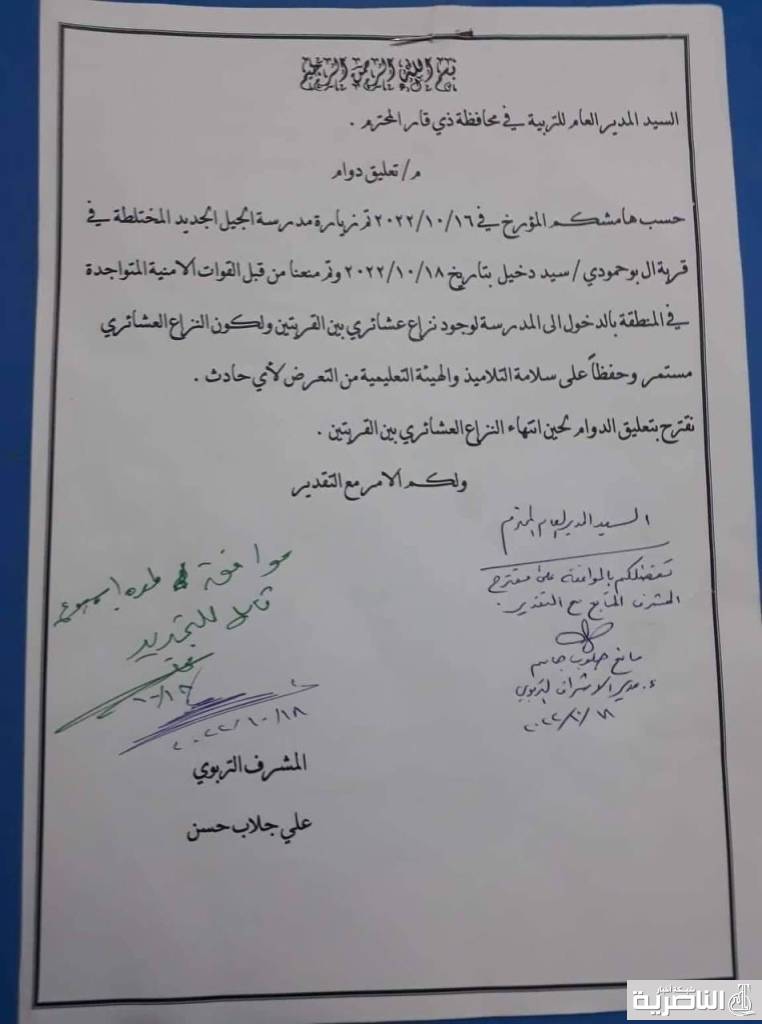 بسم الله الرحمن الرحيم
السيد المدير العام للتربية في محافظة ذي قار المحترم .
م/ تعليق دوام
حسب هامشكم المؤرخ في ٢٠٢٢/١٠/١٦ تم زيارة مدرسة الجيل الجديد المختلطة في
قرية ال بوحمودي / سيد دخيل بتاريخ ٢٠٢٢/١٠/١٨ وتم منعنا من قبل القوات الامنية المتواجدة
في المنطقة بالدخول الى المدرسة لوجود نزاع عشائري بين القريتين ولكون النزاع العشائري
مستمر وحفظاً على سلامة التلاميذ والهيئة التعليمية من التعرض لأي حادث .
نقترح بتعليق الدوام لحين انتهاء النزاع العشائري بين القريتين .
ولكم الامر مع التقدير
السيد المدير العام المحترم
تفضلكم بالموافقة على مقترح
المشرف المتابع مع التقدير .
مانع جلوب جاسم
م. مدير الاشراف التربوي
٢٠٢٢/١٠/١٨
موافقة لمدة اسبوع
قابل للتجديد
١٠/١٩
٢٠٢٢/١٠/١٨
المشرف التربوي
علي جلاب حسن
شبكة أخبار
الناصرية